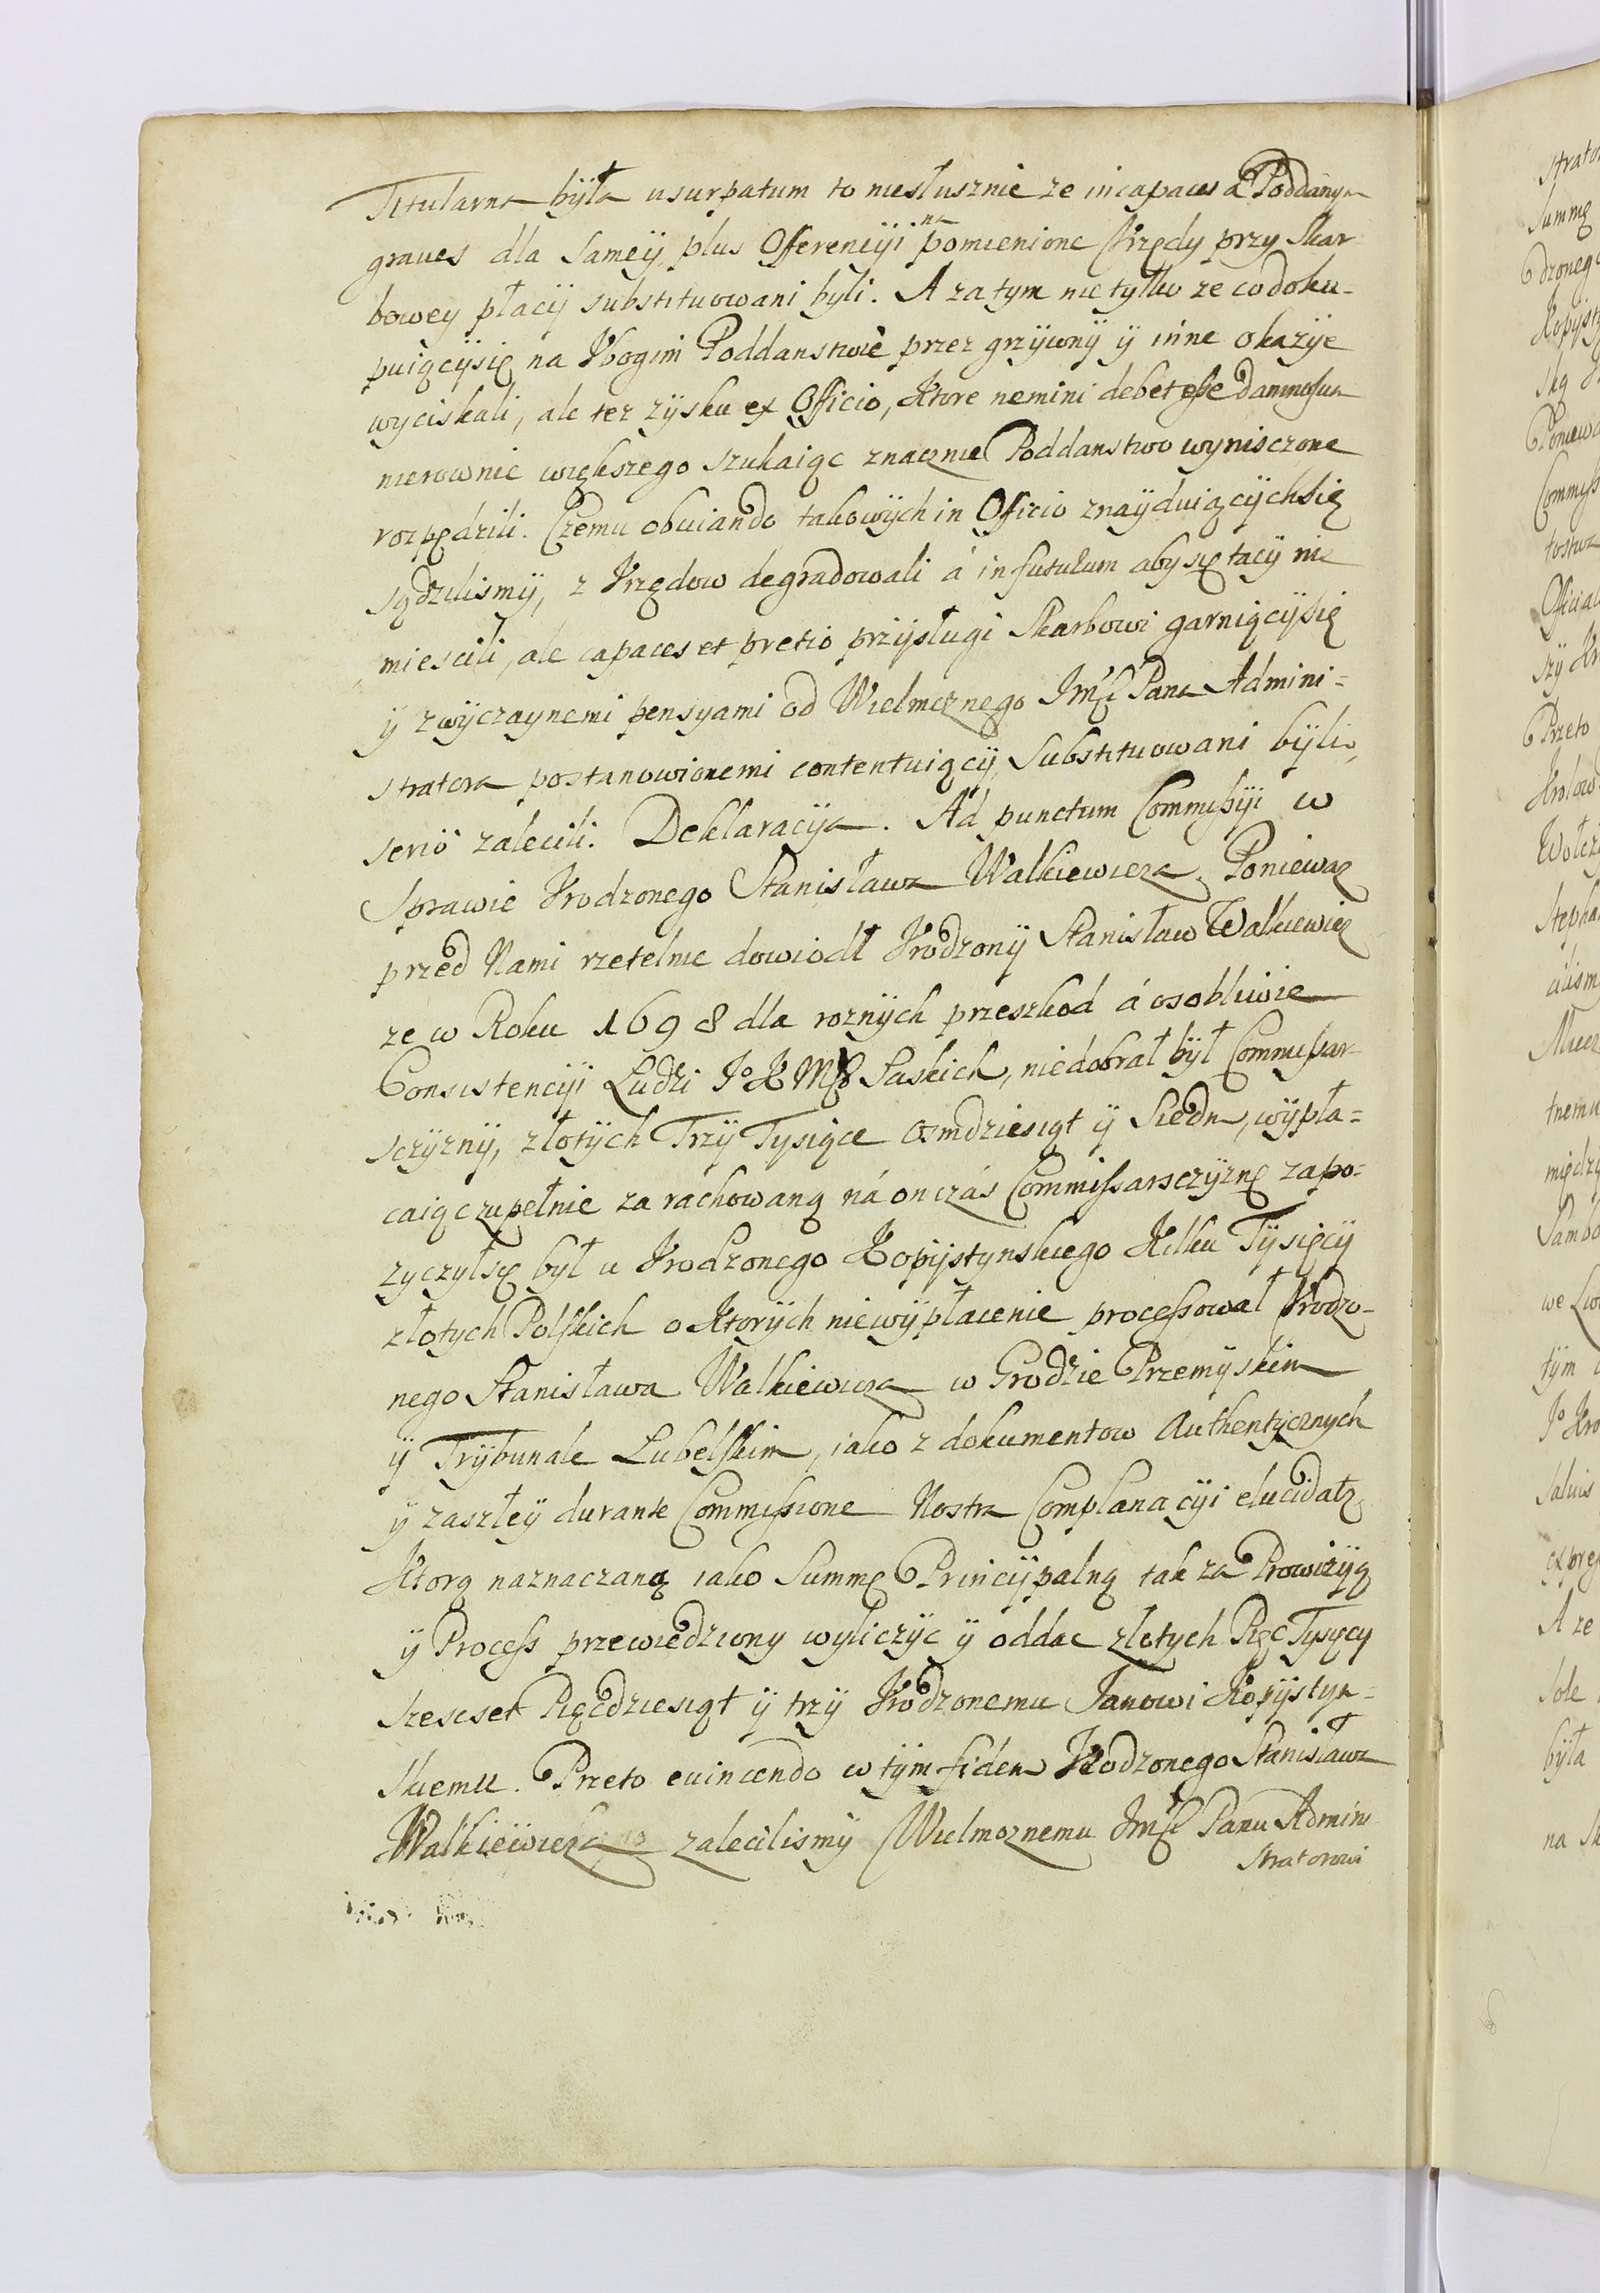 Titularna była usurpatum to niesłusznie ze incapaces á Poddanym
graves dla sameÿ plus Offerencÿi na pomienione Urzędy przy Skar-
bowey płacÿ substituowani byli. A za tym nie tylko ze co doku-
puiącÿsię na Vbogim Poddanstwie przez grzÿwnÿ ÿ inne okazÿe
wyciskali, ale tez zÿsku ex Officio, Ktore nemini debet esse damnosum
nierownie większego szukaiąc znacznie Poddanstwo wynisczone
rozpędzili. Czemu obviando takowÿch in Officio znaÿduiącÿchsię
sądzilismÿ, z Vrzędow degradowali á in futurum aby się tacÿ nie
miescili, ale capaces et pretio przÿsługi Skarbowi garniącÿsię
ÿ zwÿczaynemi pensyami od Wielmoznego Jmści Pana Admini=
stratora postanowionemi contentuiącÿ substituowani bÿli,
serio zalecili. Deklaracÿa. Ad punctum Commissÿi w
Sprawie Vrodzonego Stanisława Walkiewicza. Poniewaz
przed Nami rzetelnie dowiodł Vrodzonÿ Stanisław Walkiewicz
ze w Roku 1698 dla roznÿch przeszkod á osobliwie
Consistencÿi Ludzi Jo K Mśći Saskich, niedobrał bÿł Commissar-
sczÿznÿ, złotÿch Trzÿ Tysiące Osmdziesiąt ÿ Siedm, wÿpła=
caiąc zupełnie zarachowaną ná on czás Commissarsczÿznę zapo=
zyczÿłsię był u Vrodzonego Kopÿstynskiego Kilku Tÿsięcÿ
złotych Polskich o Ktorÿch niewÿpłacenie processował Vrodzo-
nego Stanisława Walkiewicza w Grodzie Przemÿskim
ÿ Trÿbunale Lubelskim, iako z dokumentow Authentÿcznych
ÿ zaszłeÿ durante Commissione Nostra Complanacÿi
Ktorą naznaczaną iako Summę Princÿpalną tak za Prowizÿą
ÿ Process przewiedziony wyliczÿc ÿ oddac złotych Pięc Tysięcy
Szescset Pięcdziesiąt ÿ trzÿ Vrodzonemu Janowi Kopÿstyn=
skiemu. Przeto evincendo w tÿm fidem Vrodzonego Stanisława
Walkiewicza zalecilismÿ Wielmoznemu Jmści Panu Admini
stratorowi